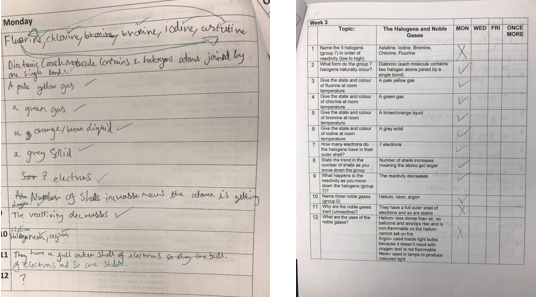 Monday
Fluorine, chlorine, bromine, Iodine, astatine
Diatomic (each molecule contains 2 halogens atoms joined by
one single bond)
A pale yellow gas
a green gas
a orange/brown liquid
a grey solid
7 electrons
Number of shells increase means the atoms is getting
The reactivity decreases
10 argon
11 They have a full outer shell of electrons
of electrons and so are stable
12 ?
Week 3
Topic: The Halogens and Noble Gases MON WED FRI ONCE MORE
1 Name the 5 halogens (group 7) in order of reactivity (low to high) Astatine, Iodine, Bromine, Chlorine, Fluorine
2 What form do the group 7 halogens naturally occur? Diatomic (each molecule contains two halogen atoms joined by a single bond)
3 Give the state and colour of fluorine at room temperature A pale yellow gas
4 Give the state and colour of chlorine at room temperature A green gas
5 Give the state and colour of bromine at room temperature A brown/orange liquid
6 Give the state and colour of iodine at room temperature A grey solid
7 How many electrons do the halogens have in their outer shell? 7 electrons
8 State the trend in the number of shells as you move down the group Number of shells increases meaning the atoms get larger
9 What happens to the reactivity as you move down the halogens (group 7)? The reactivity decreases
10 Name three noble gases (group 0) Helium, neon, argon
11 Why are the noble gases inert (unreactive)? They have a full outer shell of electrons and so are stable
12 What are the uses of the noble gases? Helium- less dense than air, so balloons and airships rise and is non-flammable so the helium cannot set on fire
Argon- used inside light bulbs because it doesn't react with oxygen and is not flammable
Neon- used in lamps to produce coloured light